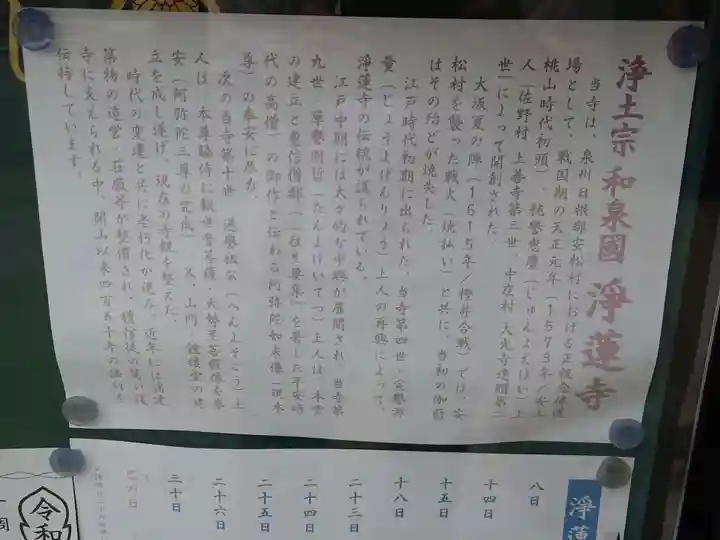 浄土宗 和泉國 淨蓮寺
当寺は、泉州日根郡安松村における正親念佛道
場として、戦国期の天正元年(1573年/安土
桃山時代初頭)、
人(佐野村 上善寺第三世、中庄村 大光寺
世)によって開創された。
大坂夏の陣(1615年/樫井合戦)では、安
松村を襲った戦火(焼払い)と共に、当初の伽藍
はその殆どが焼失した。
江戸時代初期に出られた、当寺第四世、
量(じょうよげんりょう)上人の再興によって、
淨蓮寺の伝統が護られている。
江戸中期には大々的な中興が展開され、当寺第
九世 (たんよけいてつ)上人は、本堂
の建立と恵信僧都(「往生要集」を著した平安時
代の高僧)の御作と伝わる阿弥陀如来像(現本
尊)の奉安に尽力。
次の当寺第十世 (へんよそこう)上
人は、本尊脇侍に観世音菩薩・大勢至菩薩像を奉
安(阿弥陀三尊の完成)、又、山門、鐘楼堂の建
立を成し遂げ、現在の寺観を整えた。
時代の変遷と共に老朽化が進み、近年には諸建
築物の造営・荘厳等が整備され、檀信徒の篤い後
寺に支えられる中、開山以来四百五十年の法灯を
伝持しています。
淨蓮
八日
十四日
十五日
十八日
二十三日
二十四日
二十五日
二十六日
三十日
令和